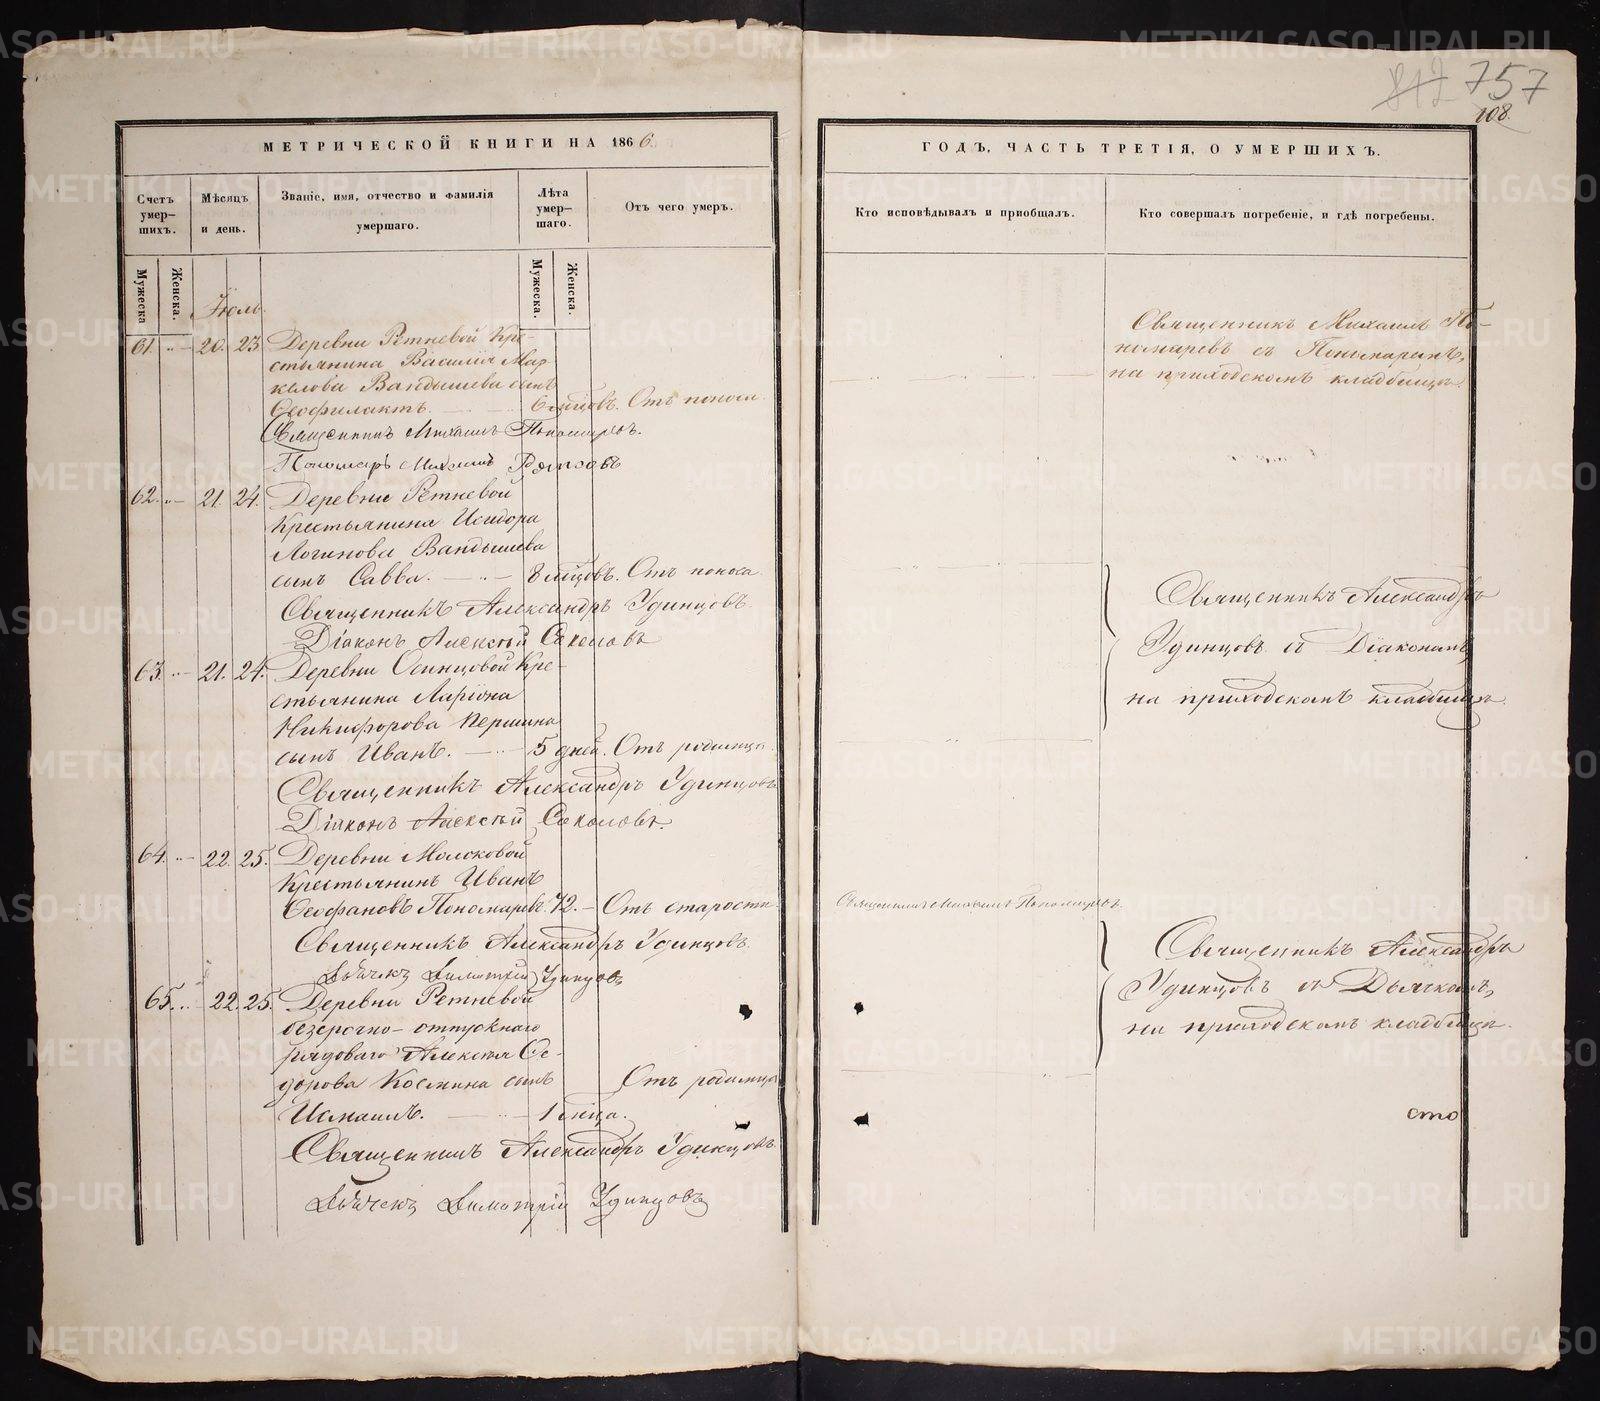 812 757
108.
МЕТРИЧЕСКОЙ КНИГИ НА 1866
ГОДЪ, ЧАСТЬ ТРЕТІЯ, О УМЕРШИХЪ.
Счетъ умер-шихъ.
Мѣсяцъ и день.
Званіе, имя, отчество и фамилія умершаго.
Лѣта умер-шаго.
Отъ чего умеръ.
Кто исповѣдывалъ и пріобщалъ.
Кто совершалъ погребеніе, и гдѣ погребены.
Мужеска
Женска.
Мужеска.
Женска.
Іюль.
61. „ 20. 23. Деревни Ретневой Кре-
стьянина Василія Мар-
келова Вандышева сынъ
Ѳеофилактъ. 6 мѣсцовъ. Отъ поноса
Священникъ Михаилъ Пономаревъ.
Пономарь Михаилъ
Священникъ Михаилъ По-
номаревъ съ Пономаремъ,
на приходскомъ кладбищѣ.
62. „ 21. 24. Деревни Ретневой
Крестьянина Исидора
Логинова Вандышева
сынъ Савва. 8 мѣсцовъ. Отъ поноса
Священникъ Александръ Удинцовъ.
Діаконъ Алексѣй Соколовъ
63. „ 21. 24. Деревни Осинцовой Кре-
стьянина Ларіона
Никифорова Першина
сынъ Иванъ. 5 дней. Отъ родимца.
Священникъ Александръ Удинцовъ
Діаконъ Алексѣй Соколовъ.
Священникъ Александръ
Удинцовъ съ Діакономъ,
на приходскомъ кладбищѣ.
64. „ 22. 25. Деревни Молоковой
Крестьянинъ Иванъ
Ѳеофановъ Пономаревъ. 72. Отъ старости
Священникъ Михаилъ Пономаревъ.
Священникъ Александръ Удинцовъ.
Дьячекъ Димитрій Удинцовъ
65. „ 22. 25. Деревни Ретневой
безсрочно-отпускнаго
рядоваго Алексѣя Ѳе-
дорова Космина сынъ Отъ родимца
Исмаилъ. 1 мѣсца.
Священникъ Александръ Удинцовъ.
Дьячекъ Димитрій Удинцовъ
Священникъ Александръ
Удинцовъ съ Дьячкомъ,
на приходскомъ кладбищѣ.
сто
METRIKI.GASO-URAL.RU